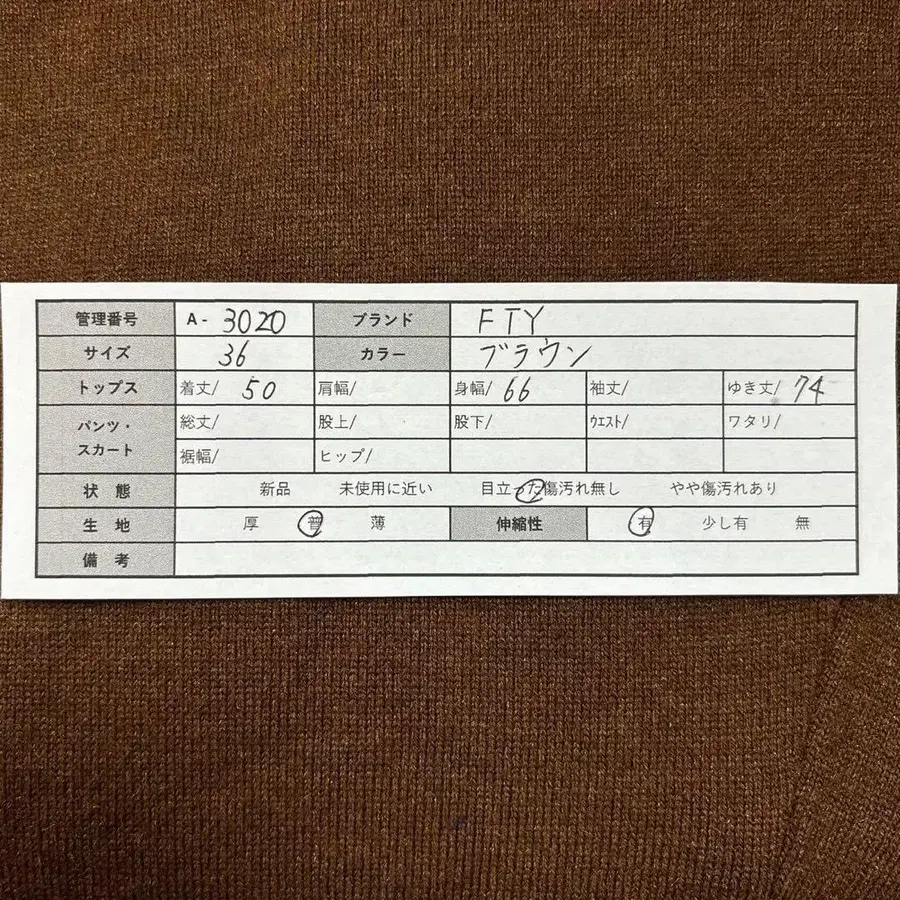 管理番号 A- 3020 ブランド FTY
サイズ 36 カラー ブラウン
トップス 着丈/ 50 肩幅/ 身幅/ 66 袖丈/ ゆき丈/ 74
パンツ・スカート 総丈/ 股上/ 股下/ ウエスト/ ワタリ/
裾幅/ ヒップ/
状態 新品 未使用に近い 目立った傷汚れ無し やや傷汚れあり
生地 厚 普 薄 伸縮性 有 少し有 無
備考